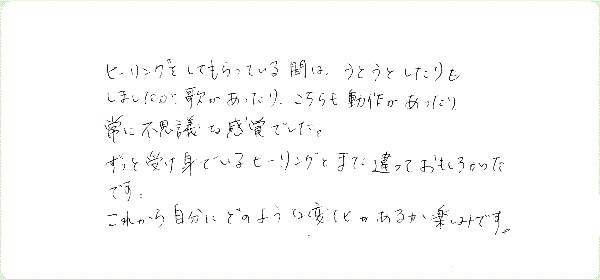 ヒーリングをしてもらっている間は、うとうとしたりも
しましたが、歌があったり、こちらも動作があったり
常に不思議な感覚でした。
ずっと受け身でいるヒーリングとまた違っておもしろかった
です。
これから自分にどのような変化があるか楽しみです。